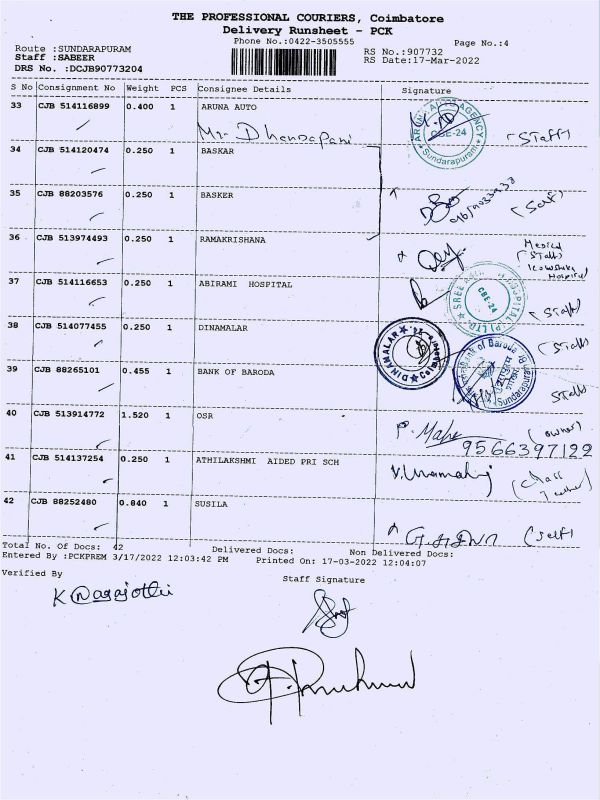 THE PROFESSIONAL COURIERS, Coimbatore
Delivery Runsheet - PCK
Phone No.:0422-3505555
Page No.:4
Route :SUNDARAPURAM
Staff :SABEER
DRS No. :DCJB90773204
RS No.:907732
RS Date:17-Mar-2022
S No Consignment No Weight PCS Consignee Details Signature
33 CJB 514116899 0.400 1 ARUNA AUTO
Mr. Dhandapani
ARUNA AUTO AGENCY CBE-24 Sundarapuram
(Staff)
34 CJB 514120474 0.250 1 BASKAR
35 CJB 88203576 0.250 1 BASKER
(Self)
36 CJB 513974493 0.250 1 RAMAKRISHANA
Medical
(Staff)
Hospital
37 CJB 514116653 0.250 1 ABIRAMI HOSPITAL
HOSPITAL (P) LTD. CBE-24
(Staff)
38 CJB 514077455 0.250 1 DINAMALAR
DINAMALAR
(Staff)
39 CJB 88265101 0.455 1 BANK OF BARODA
Bank of Baroda Sundarapuram
Staff
40 CJB 513914772 1.520 1 OSR
(owner)
9566397122
41 CJB 514137254 0.250 1 ATHILAKSHMI AIDED PRI SCH
(class
Teacher)
42 CJB 88252480 0.840 1 SUSILA
(Self)
Total No. Of Docs: 42 Delivered Docs: Non Delivered Docs:
Entered By :PCKPREM 3/17/2022 12:03:42 PM Printed On: 17-03-2022 12:04:07
Verified By
Staff Signature
K Nagajothi